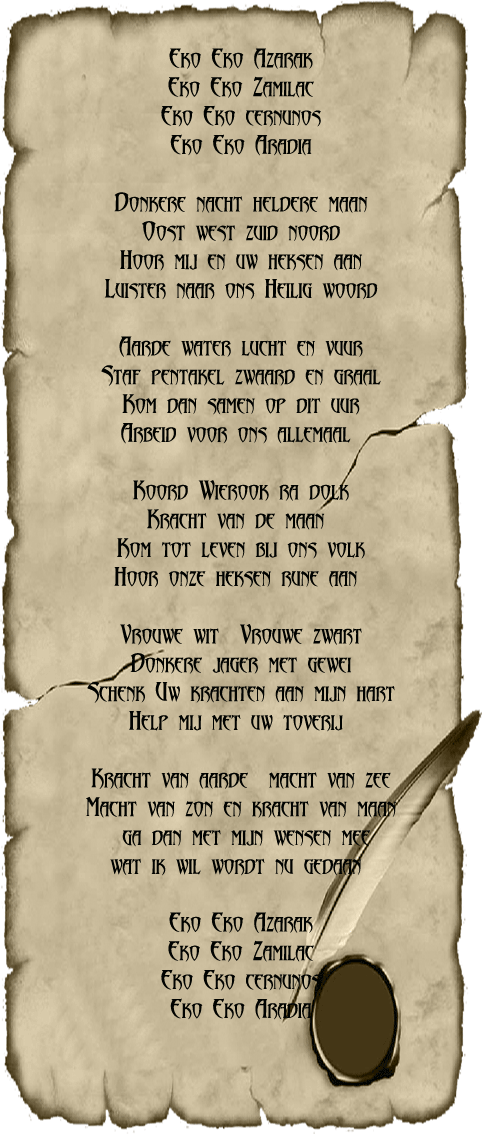 Eko Eko Azarak
Eko Eko Zamilac
Eko Eko cernunos
Eko Eko Aradia
Donkere nacht heldere maan
Oost west zuid noord
Hoor mij en uw heksen aan
Luister naar ons Heilig woord
Aarde water lucht en vuur
Staf pentakel zwaard en graal
Kom dan samen op dit uur
Arbeid voor ons allemaal
Koord Wierook ra dolk
Kracht van de maan
Kom tot leven bij ons volk
Hoor onze heksen rune aan
Vrouwe wit Vrouwe zwart
Donkere jager met gewei
Schenk Uw krachten aan mijn hart
Help mij met uw toverij
Kracht van aarde macht van zee
Macht van zon en kracht van maan
ga dan met mijn wensen mee
wat ik wil wordt nu gedaan
Eko Eko Azarak
Eko Eko Zamilac
Eko Eko cernunos
Eko Eko Aradia